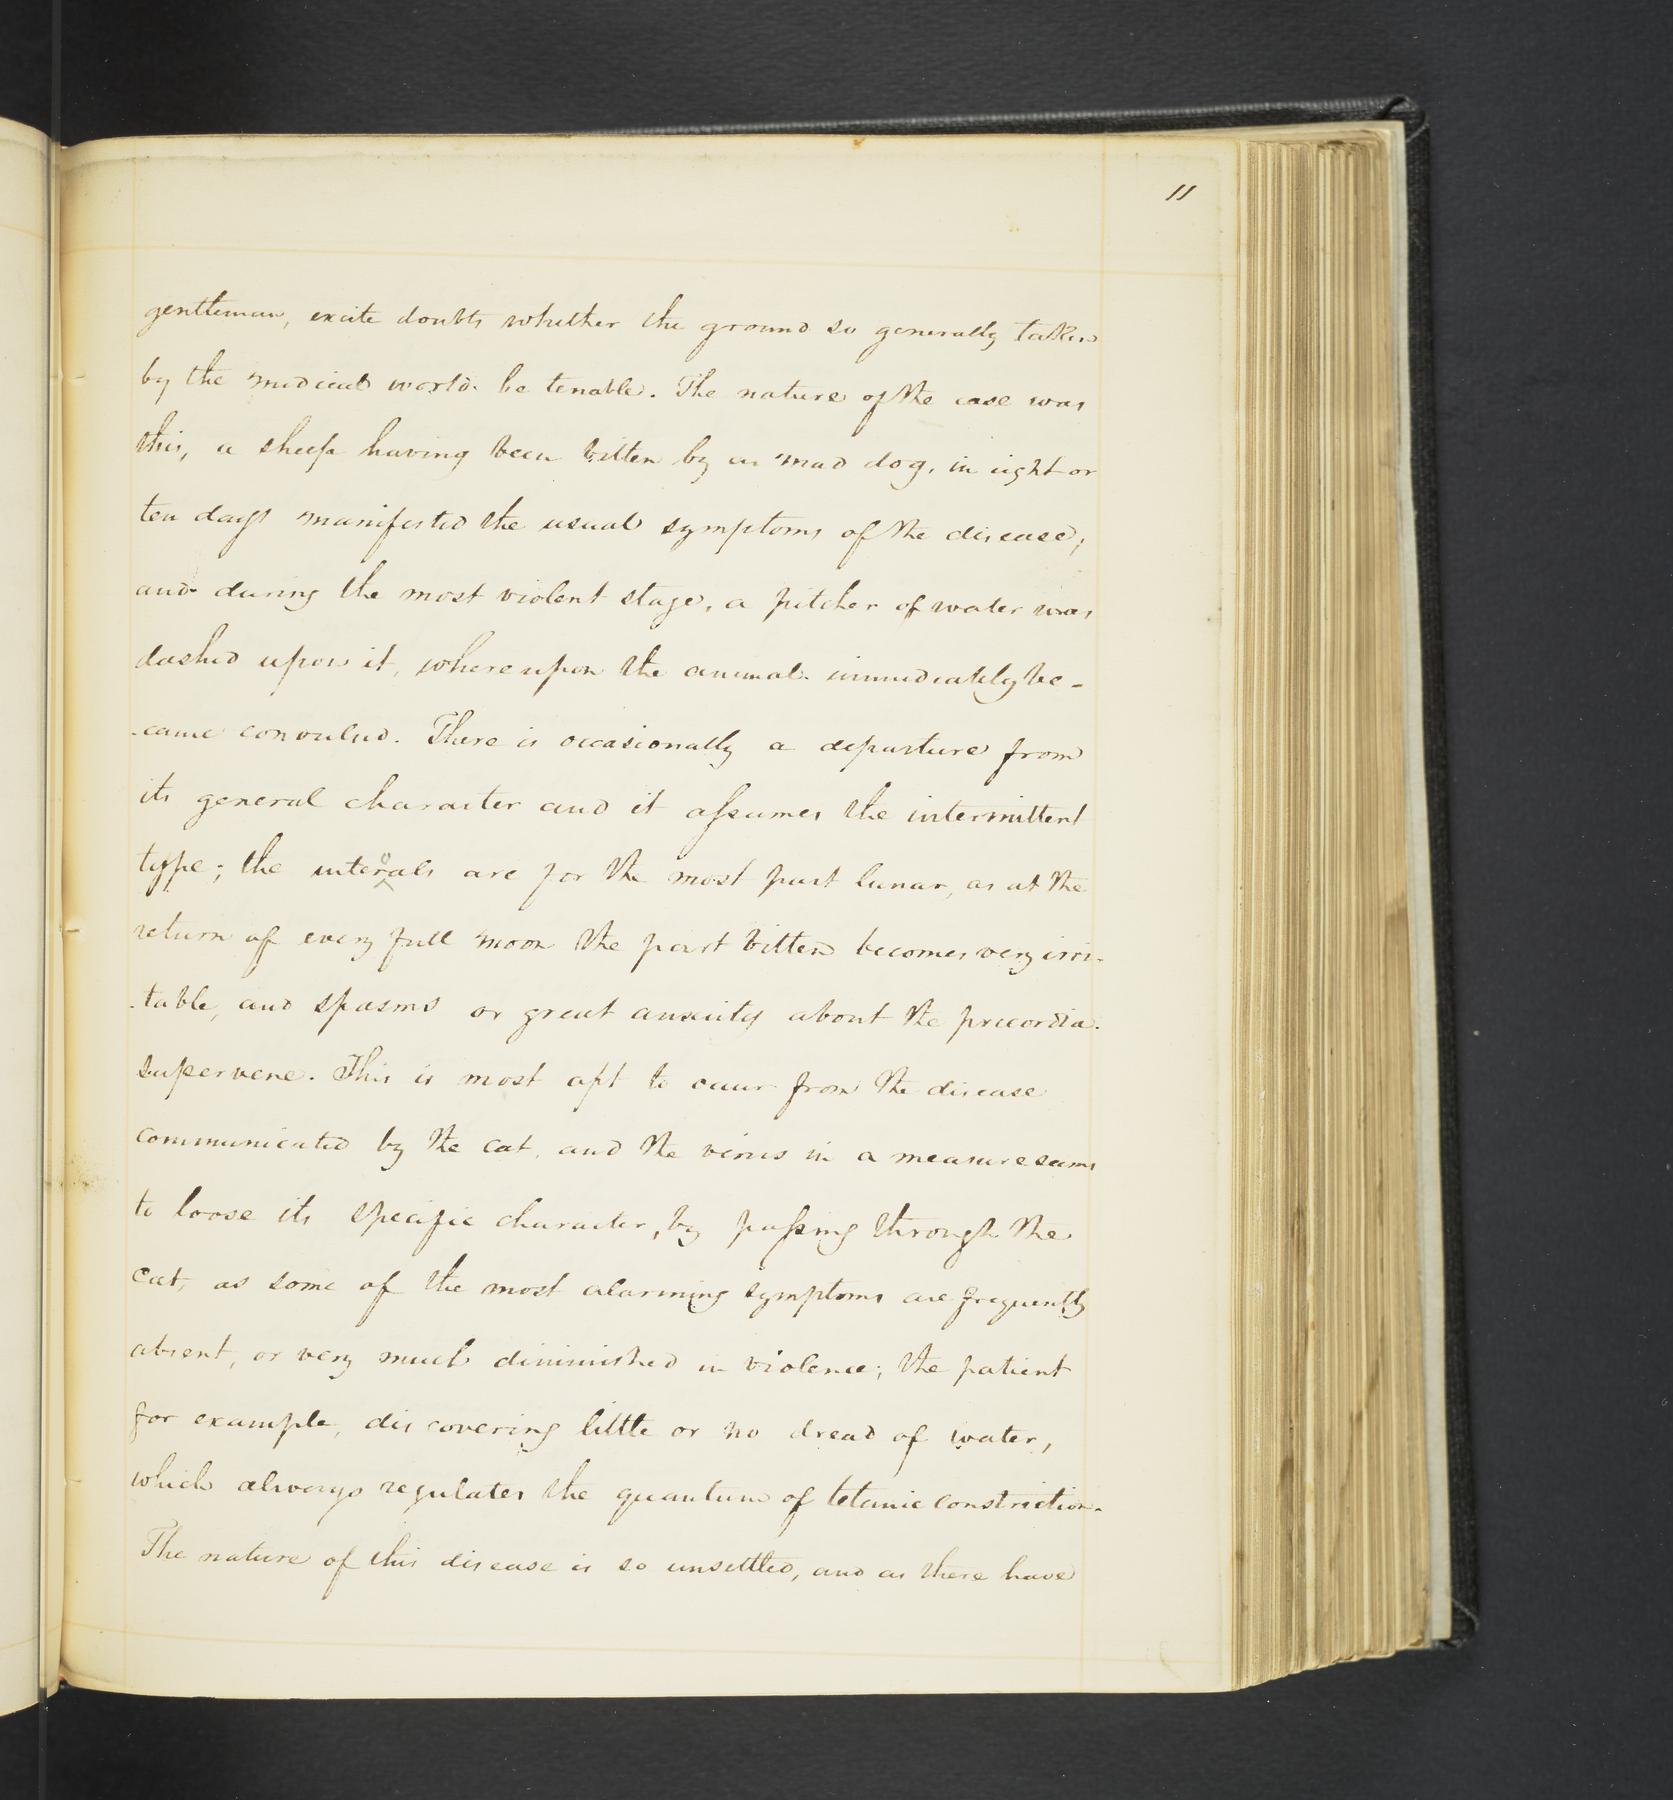 11
gentleman, excite doubts whether the ground so generally taken
by the medical world be tenable. The nature of the case was
this, a sheep having been bitten by a mad dog, in eight or
ten days manifested the usual symptoms of the disease;
and during the most violent stage, a pitcher of water was
dashed upon it, whereupon the animal immediately be-
-came convulsed. There is occasionally a departure from
its general character and it assumes the intermittent
type; the intervals are for the most part lunar, as at the
return of every full moon the part bitten becomes very irri-
-table, and spasms or great anxiety about the precordia
supervene. This is most apt to occur from the disease
communicated by the cat, and the virus in a measure seems
to loose its specific character, by passing through the
cat, as some of the most alarming symptoms are frequently
absent, or very much diminished in violence; the patient
for example, discovering little or no dread of water,
which always regulates the quantum of tetanic constriction.
The nature of this disease is so unsettled, and as there have